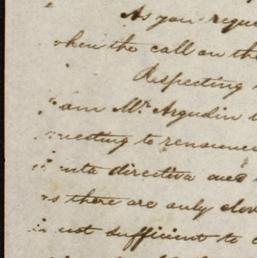 As you reque
when the call on the
Respecting
am Mr. Argudin
questing to renounce
unta directiva and
as there are only elev
is not sufficient to c